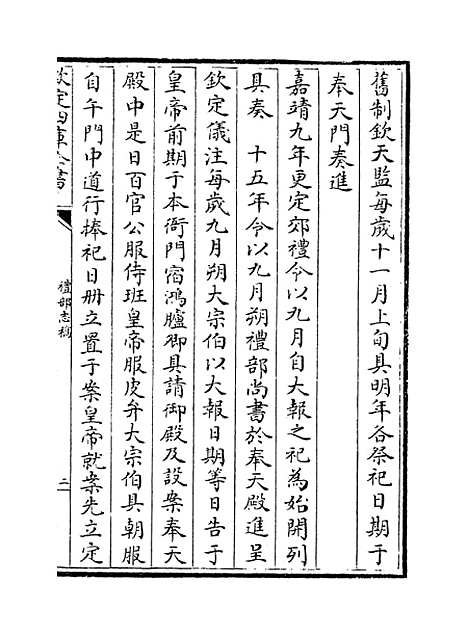 舊制欽天監每歲十一月上旬具明年各祭祀日期于
奉天門奏進
嘉靖九年更定郊禮令以九月自大報之祀為始開列
具奏　十五年令以九月朔禮部尚書於奉天殿進呈
欽定儀注每歲九月朔大宗伯以大報日期等日告于
皇帝前期于本衙門宿鴻臚卿具請御殿及設案奉天
殿中是日百官公服侍班皇帝服皮弁大宗伯具朝服
自午門中道行捧祀日册立置于案皇帝就案先立定
欽定四庫全書
禮部志稿
三